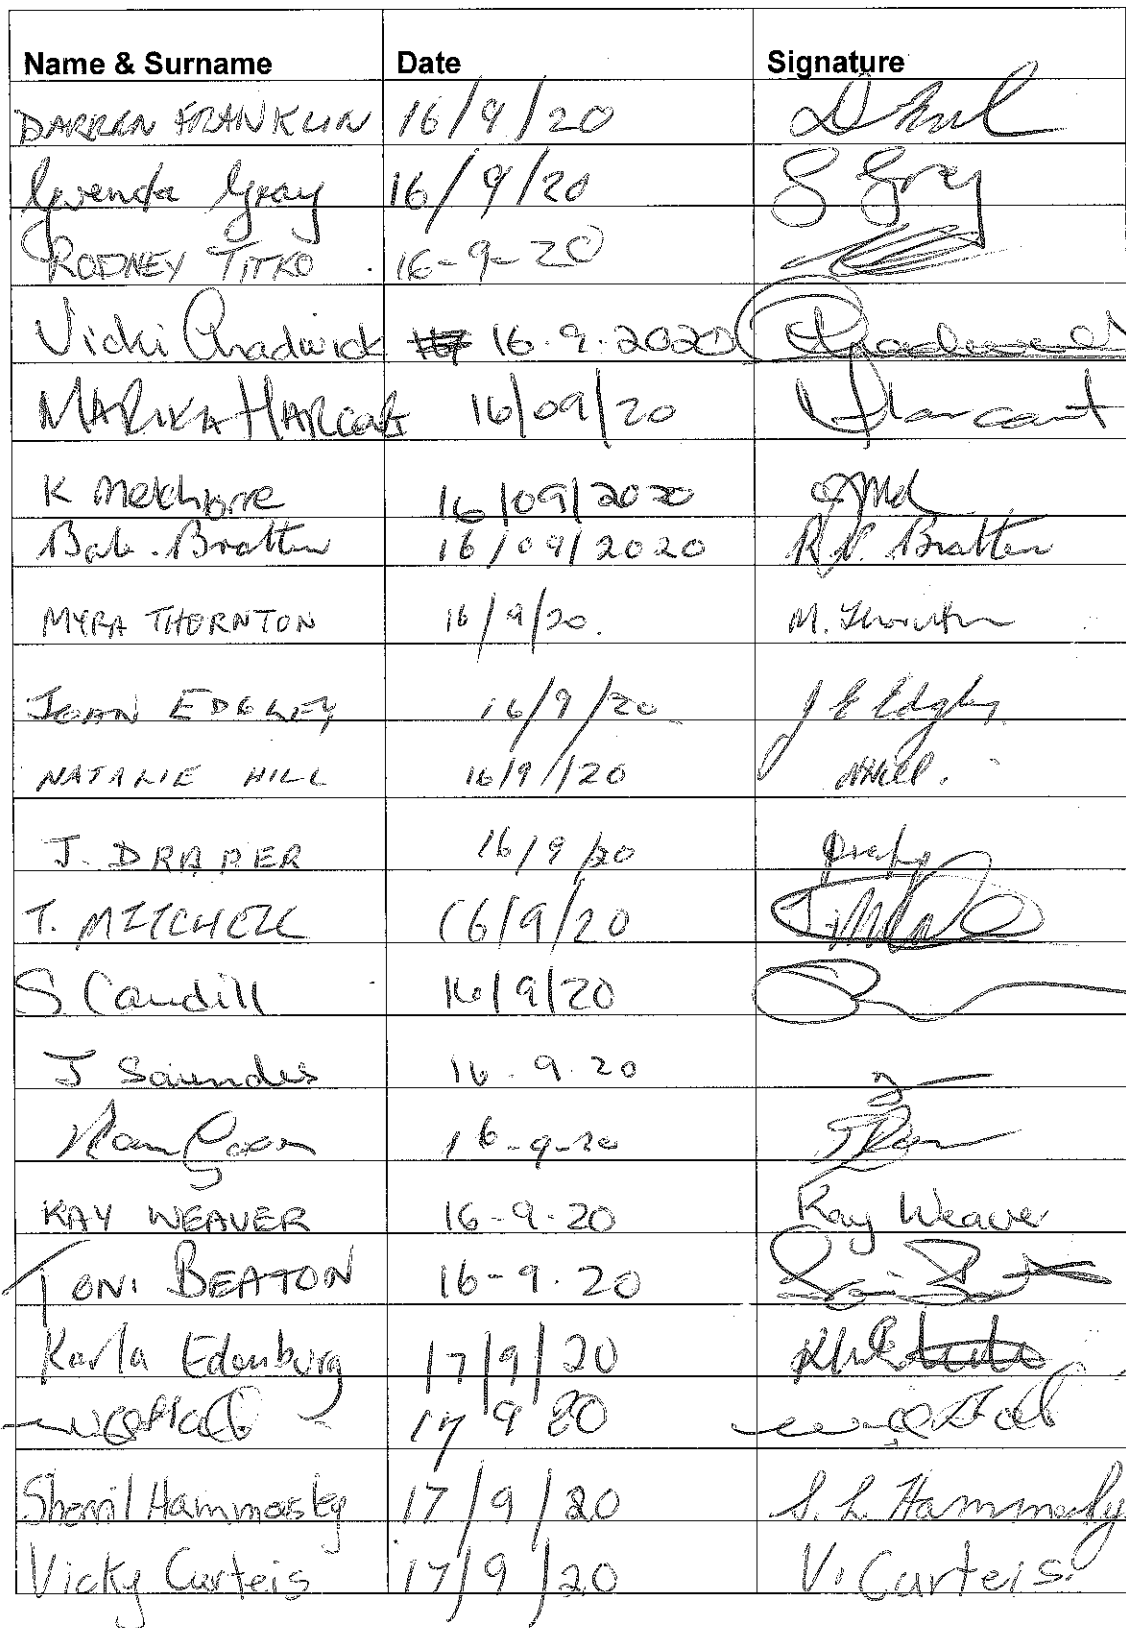 Name & Surname Date Signature
DARREN FRANKLIN 16/9/20
Gwenda Gray 16/9/20 G Gray
RODNEY TITKO 16-9-20
Vicki Chadwick 16.9.2020 Chadwick
MARIKA HARCOURT 16/09/20 Harcourt
K Melchiorre 16/09/2020
Bob. Bratten 16/09/2020 R.N. Bratten
MYRA THORNTON 16/9/20. M. Thornton
JOAN EDGLEY 16/9/20 J E Edgley
NATALIE HILL 16/9/20 NHill.
J. DRAPER 16/9/20 Draper
T. MITCHELL 16/9/20
S Caudill 16/9/20
J Saunders 16.9.20
16-9-20
KAY WEAVER 16-9-20 Kay Weaver
TONI BEATON 16-9.20
Karla Edenburg 17/9/20
17 9 20
Sherril Hammersley 17/9/20 S. L. Hammersley
Vicky Curteis 17/9/20 V. Curteis.